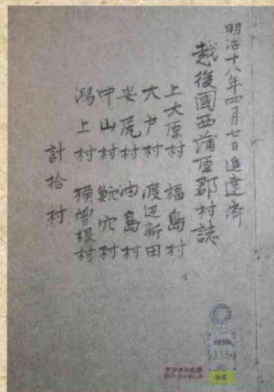 明治十八年四月七日進達済
越後國西蒲原郡村誌
上大原村　福島村
大戸村　渡辺新田
安尾村　内島村
中山村
潟上村　横曽根村
計拾村